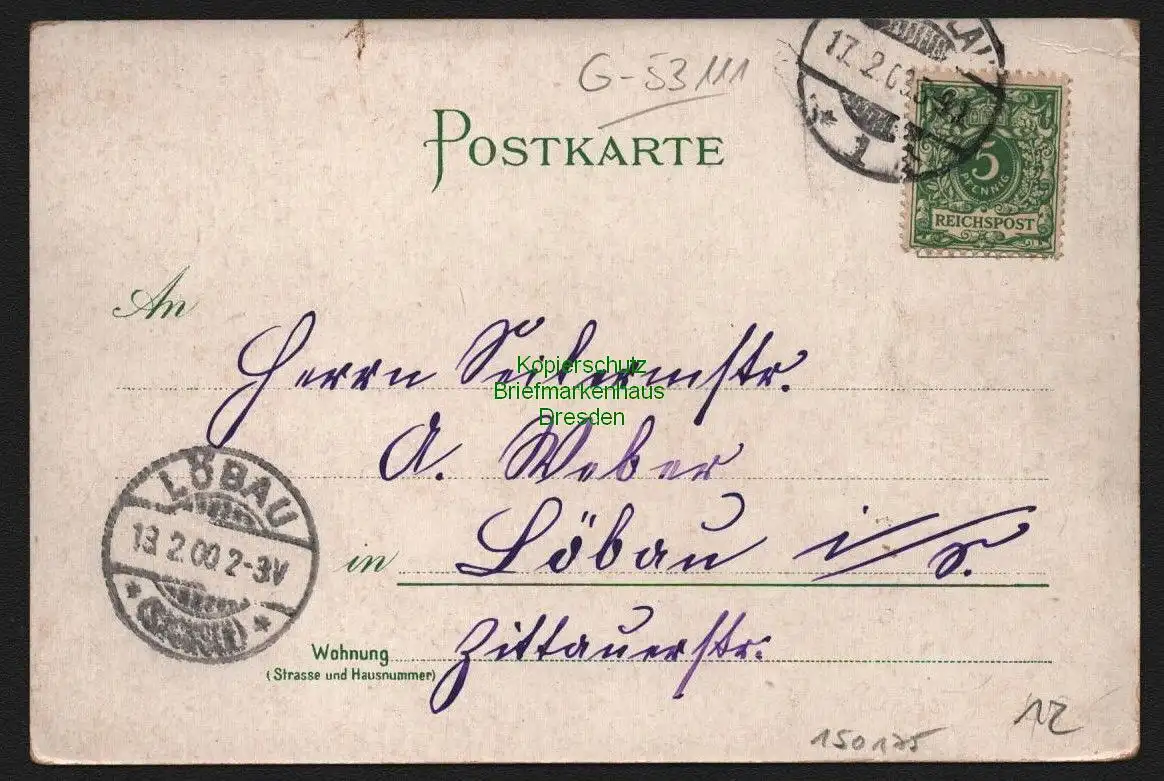 G-53111
17.2.0
1
5
PFENNIG
REICHSPOST
POSTKARTE
An
Herrn Seilermstr.
Kopierschutz
Briefmarkenhaus
Dresden
A. Weber
in Löbau i/S.
LÖBAU
13 2.00 2-3V
Wohnung
(Strasse und Hausnummer)
Zittauerstr.
150175